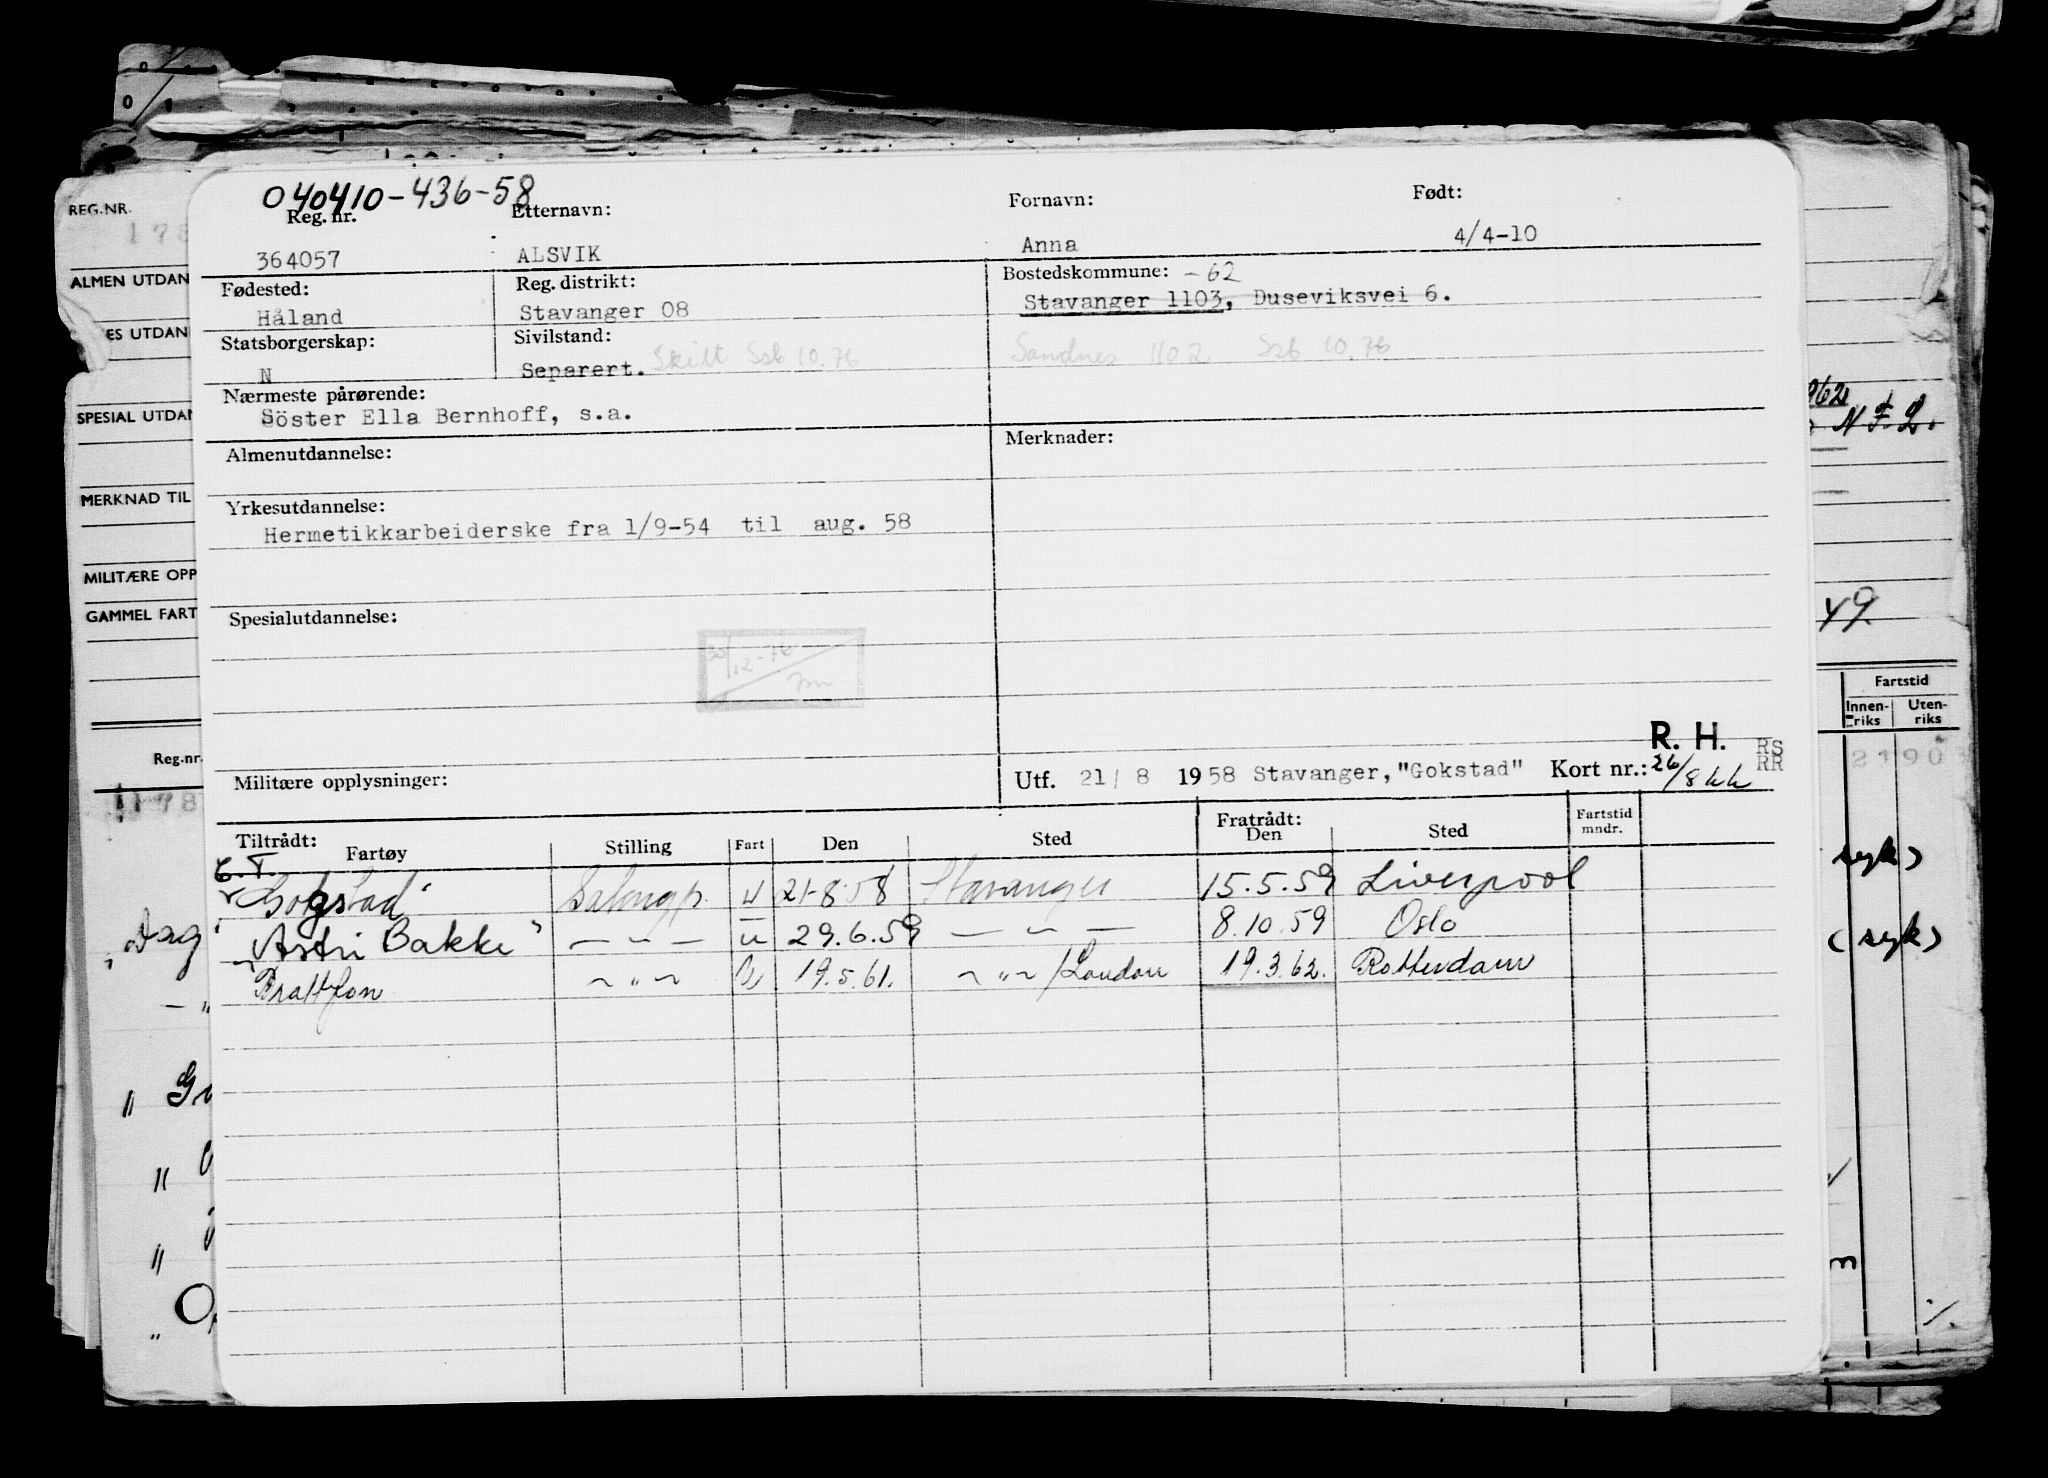 040410-436-58
Reg. nr. Etternavn: Fornavn: Født:
364057 ALSVIK Anna 4/4-10
Fødested: Reg. distrikt: Bostedskommune: -62
Håland Stavanger 08 Stavanger 1103, Duseviksvei 6.
Statsborgerskap: Sivilstand:
N Separert. Skilt Ssb 10.76 Sandnes 1102 Ssb 10.76
Nærmeste pårørende:
Söster Ella Bernhoff, s.a.
Almenutdannelse: Merknader:
Yrkesutdannelse:
Hermetikkarbeiderske fra 1/9-54 til aug. 58
Spesialutdannelse:
30/12-76
R. H. RS
RR
Militære opplysninger: Utf. 21/ 8 1958 Stavanger, "Gokstad" Kort nr.: 26/8 kk
Tiltrådt: Fartøy Stilling Fart Den Sted Fratrådt: Den Sted Fartstid mndr.
C. T.
"Gokstad" Salongp. u 21-8-58 Stavanger 15.5.59 Liverpool
"Astri Bakke" — " — u 29.6.59 — " — 8.10.59 Oslo
Brattfon ~ " ~ 19.5.61. ~ " ~ /London 19.3.62. Rotterdam
REG.NR.
178
ALMEN UTDAN
ES UTDAN
SPESIAL UTDAN
MERKNAD TIL
MILITÆRE OPP
GAMMEL FART
Reg.nr.
1178
"Dag
— "
" 
"
"
"
62
N F. L.
49
Fartstid
Innen-riks Uten-riks
2190
syk)
(syk)
m